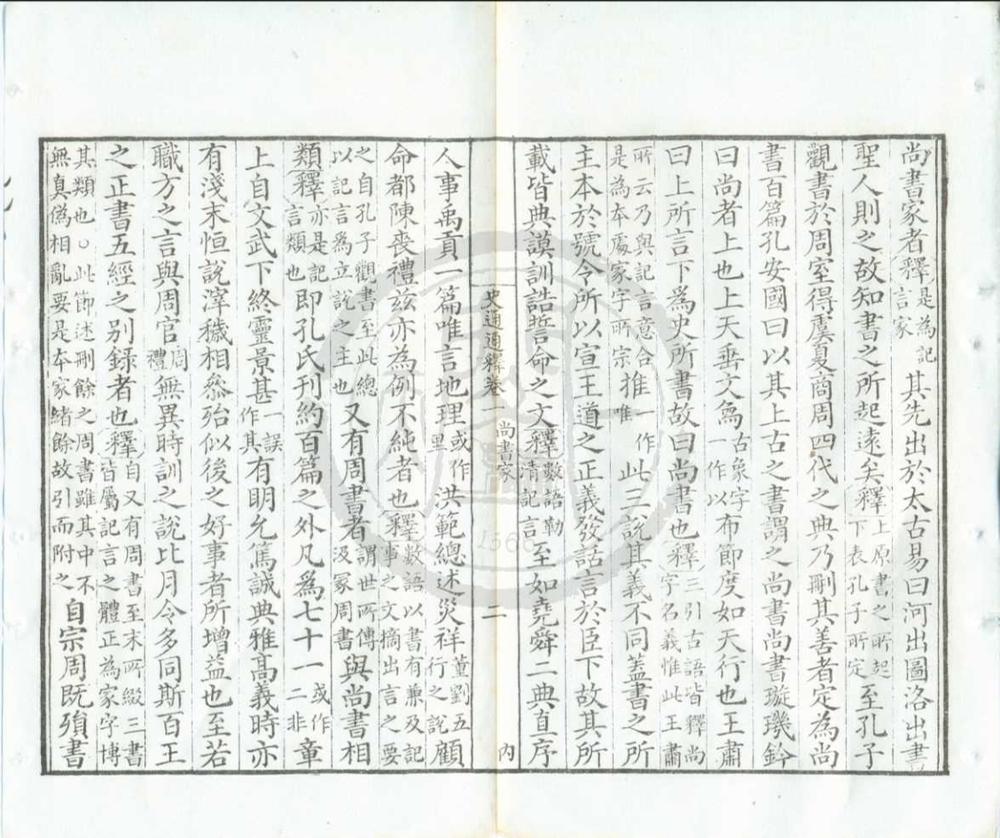 尚書家者釋是為記言家其先出於太古易曰河出圖洛出書
聖人則之故知書之所起遠矣釋上原書之所起下表孔子所定至孔子
觀書於周室得虞夏商周四代之典乃刪其善者定為尚
書百篇孔安國曰以其上古之書謂之尚書尚書璇璣鈐
曰尚者上也上天垂文爲古象字一作以布節度如天行也王肅
曰上所言下爲史所書故曰尚書也釋三引古語皆釋尚字名義惟此王肅
所云乃與記言意合是為本處家字所宗推一作唯此三說其義不同蓋書之所
主本於號令所以宣王道之正義發話言於臣下故其所
載皆典謨訓誥誓命之文釋數語勒清記言至如堯舜二典直序
史通通釋卷一 尚書家 二 內
人事禹貢一篇唯言地理或作里洪範總述災祥董劉五行之說顧
命都陳喪禮茲亦為例不純者也釋數語以書有兼及記事之文摘出言之要
之自孔子觀書至此總以記言爲立說之主也又有周書者謂世所傳汲冢周書與尚書相
類釋亦是記言類也即孔氏刊約百篇之外凡爲七十一或作二非章
上自文武下終靈景甚一誤作其有明允篤誠典雅高義時亦
有淺末恒說滓穢相參殆似後之好事者所增益也至若
職方之言與周官周禮無異時訓之說比月令多同斯百王
之正書五經之別錄者也釋自又有周書至末所綴三書皆屬記言之體正為家字博
其類也○此節述刪餘之周書雖其中不無真僞相亂要是本家緒餘故引而附之自宗周既殞書